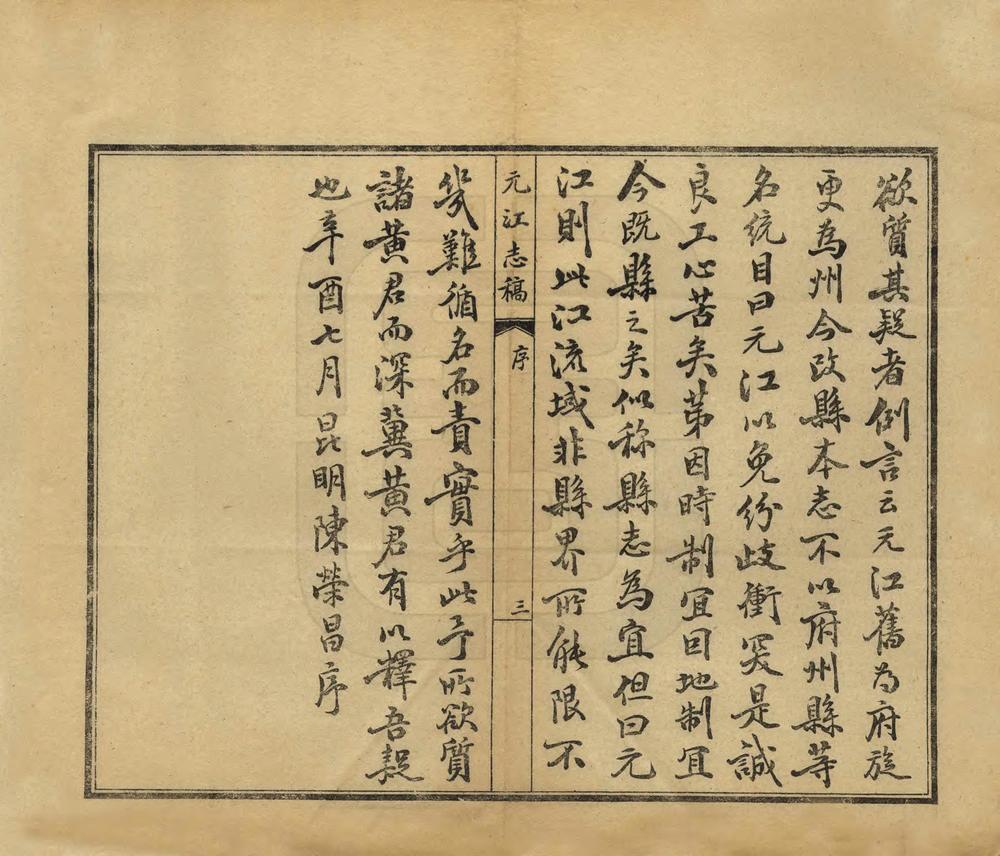 欲質其疑者例言云元江舊為府旋
更為州今改縣本志不以府州縣等
名統目曰元江以免紛歧衝突是誠
良工心苦矣苐因時制宜因地制宜
今既縣之矣似称縣志為宜但曰元
江則此江流域非縣界所能限不
元江志稿
序
三
幾難循名而責實乎此予所欲質
諸黃君而深冀黃君有以釋吾疑
也辛酉七月昆明陳榮昌序